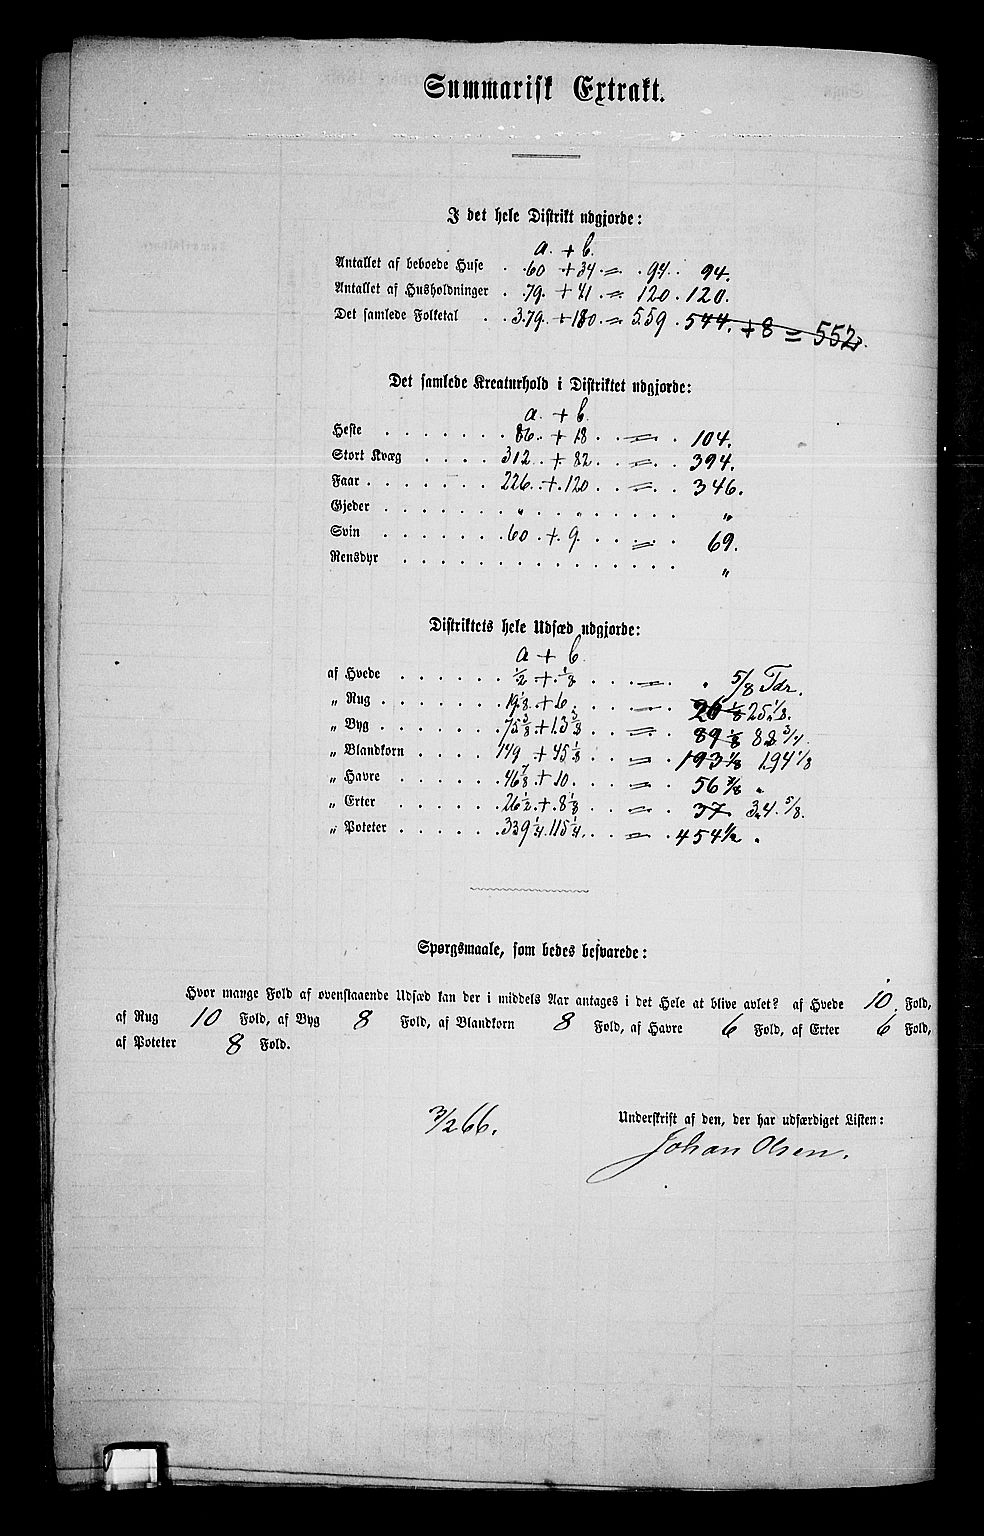 Summarisk Extrakt.
I det hele Distrikt udgjorde:
a. + b.
Antallet af beboede Huse . 60 + 34 = . 94. 94.
Antallet af Husholdninger . 79. + 41 = 120 . 120.
Det samlede Folketal . . 379. + 180 = 559 . 544. + 8 = 552.
Det samlede Kreaturhold i Distriktet udgjorde:
a. + b.
Heste . . . . . . . 86. + 18 . . = . 104.
Stort Kvæg . . . . 312 . + 82 . . = . 394.
Faar . . . . . . . 226. + 120 . . = . 346.
Gjeder . . . . . . . " . . " . . . . . "
Svin . . . . . . 60 . + 9 . . . = . 69.
Rensdyr . . . . . . . . . . . . . . "
Distriktets hele Udsæd udgjorde:
a + b
af Hvede . . . . . . ½ + ⅛ . . . = . 5/8 Tdr.
„ Rug . . . . . . . 19⅛ + 6 . . . = 26 ⅛ 25 ⅛.
„ Byg . . . . . . . 75⅜ + 13⅜ . . = . 89 ⅛ 88 ¾.
„ Blandkorn . . . . . 149 + 45⅛ . . = . 193 ⅛ 194 ⅛
„ Havre . . . . . . 46⅞ + 10 . . . = . 56 ⅞ "
„ Erter . . . . . . 26½ + 8⅛ . . . = . 37 34 . 5/8.
„ Poteter . . . . . . 339¼ 115¼ . . = . 454 ½ "
Spørgsmaale, som bedes besvarede:
Hvor mange Fold af ovenstaaende Udsæd kan der i middels Aar antages i det Hele at blive avlet? af Hvede 10. Fold,
af Rug 10 Fold, af Byg 8 Fold, af Blandkorn 8 Fold, af Havre 6 Fold, af Erter 6 Fold,
af Poteter 8 Fold.
3/2 66.
Underskrift af den, der har udfærdiget Listen:
Johan Olsen.